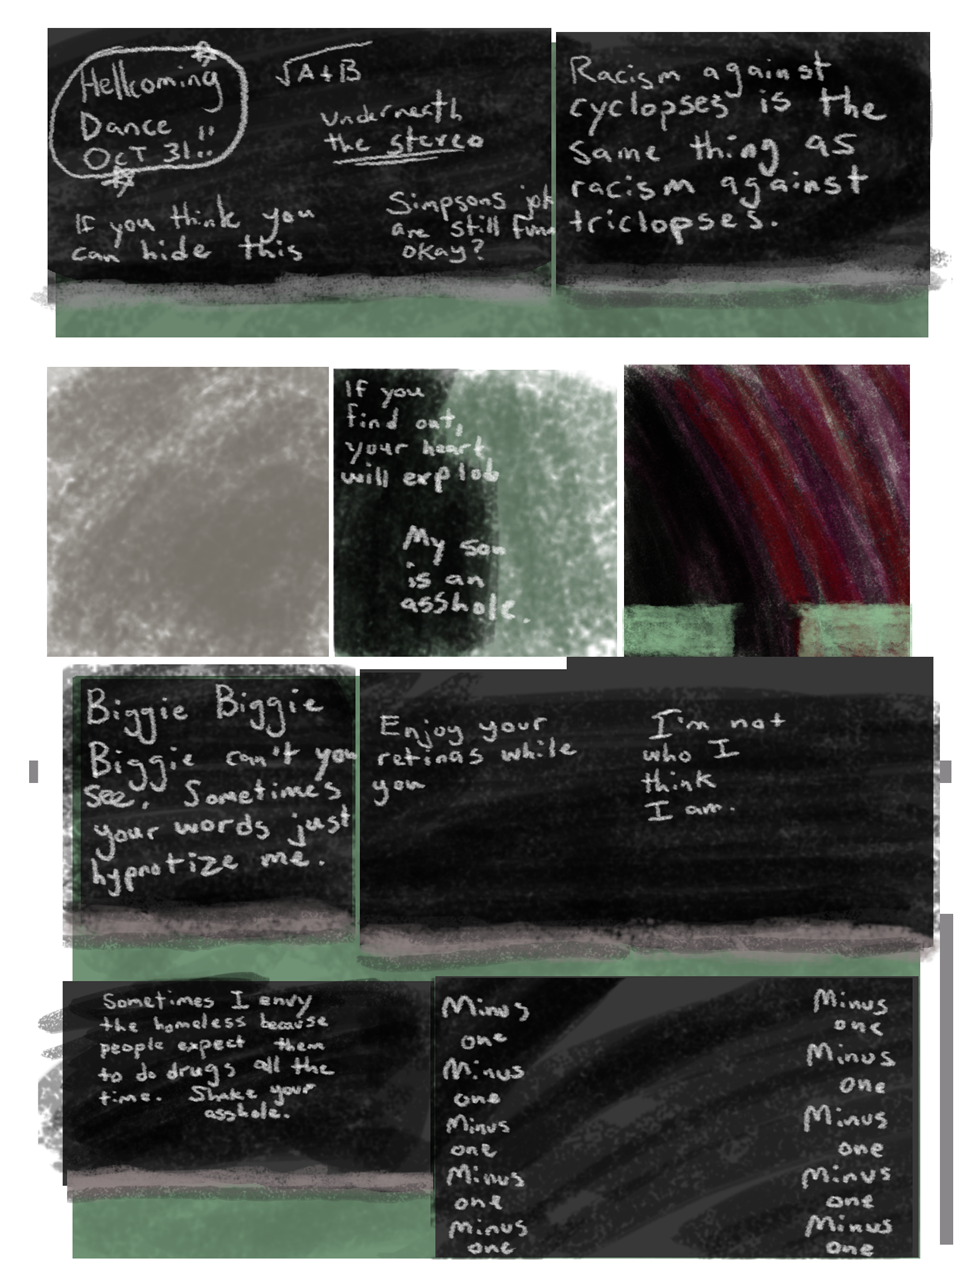 Hellcoming
Dance
OcT 31!!
√A+B
underneath
the stereo
If you think you
can hide this
Simpsons jok
are still funn
okay?
Racism against
cyclopses is the
same thing as
racism against
triclopses.
If you
find out,
your heart
will explod
My son
is an
asshole.
Biggie Biggie
Biggie can't you
see. Sometimes
your words just
hypnotize me.
Enjoy your
retinas while
you
I'm not
who I
think
I am.
Sometimes I envy
the homeless because
people expect them
to do drugs all the
time. Shake your
asshole.
Minus
one
Minus
one
Minus
one
Minus
one
Minus
one
Minus
one
Minus
one
Minus
one
Minus
one
Minus
one